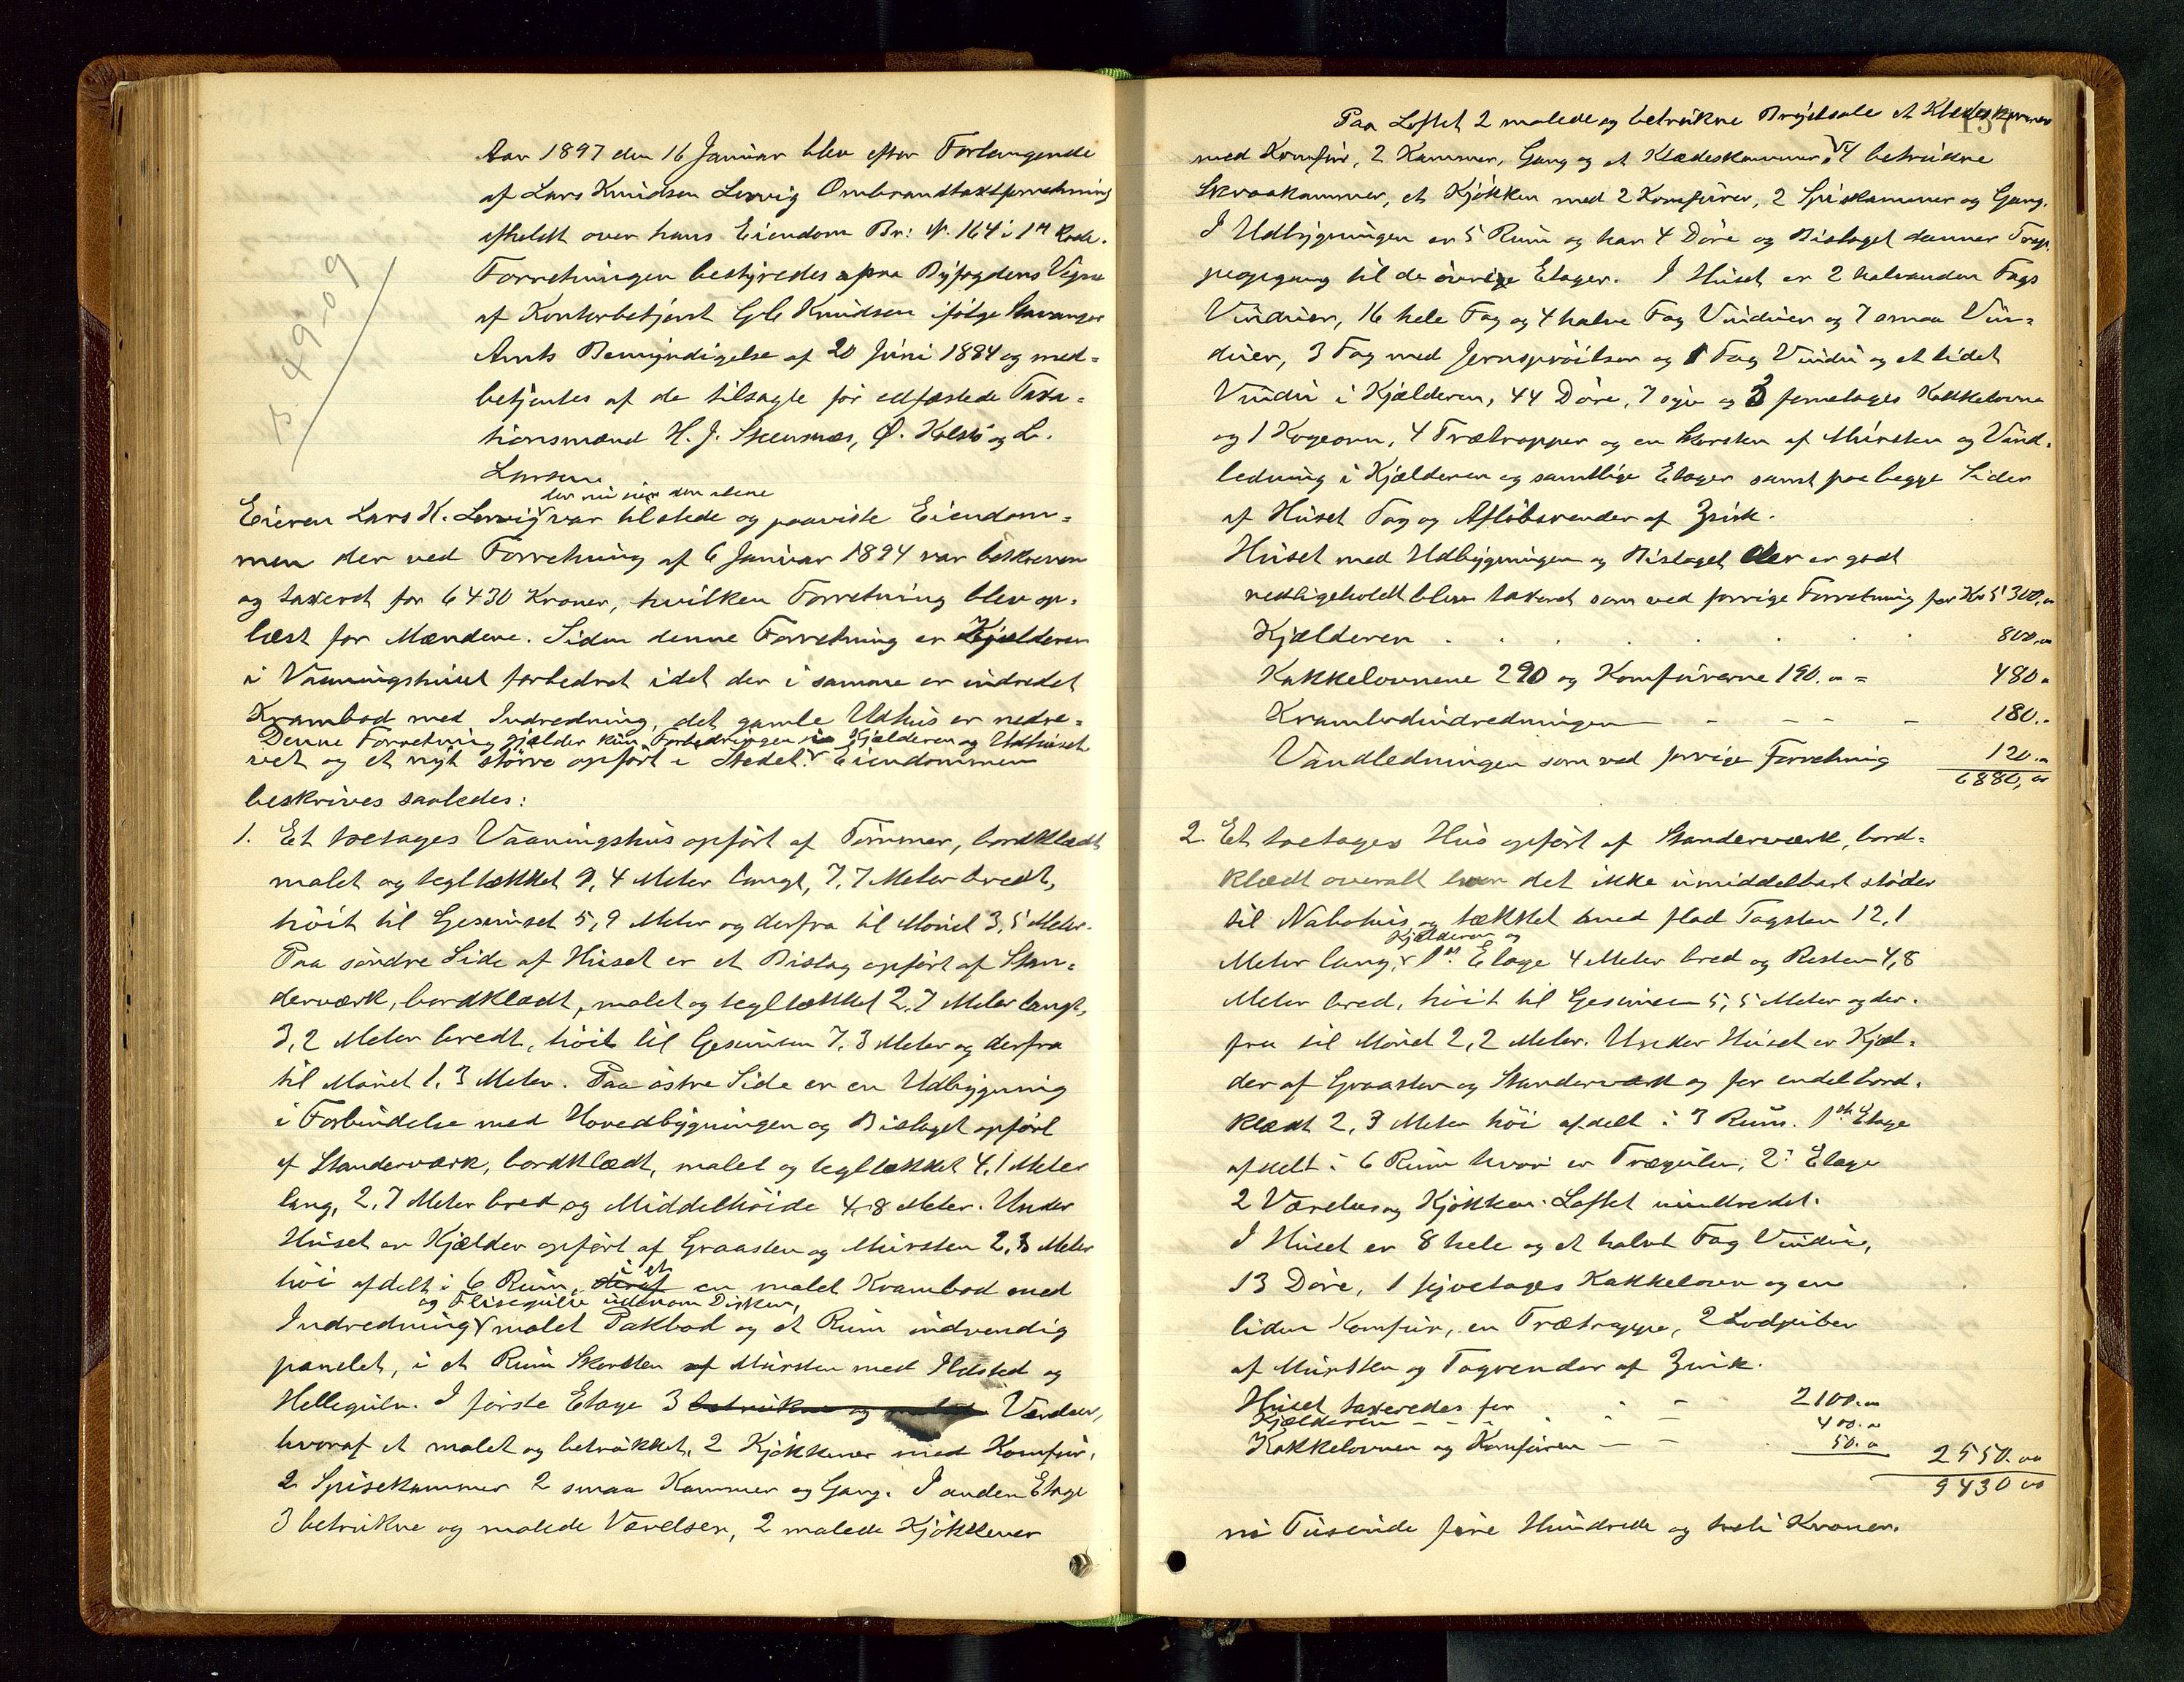 Aar 1897 den 16 Januar blev efter Forlangende
af Lars Knudsen Lervig Ombrandtaxtforretning
afholdt over hans Eiendom Br: N. 164 i 1ste Rode.
Forretningen bestyredes paa Byfogdens Vegne
af Kontorbetjent Knudsen ifølge Stavanger
Amts Bemyndigelse af 20 Juni 1884 og med=
betjentes af de tilsagte før edfæstede Taxa=
tionsmænd H. J. Skeusnæs, O. Kolstø og L.
Larsen.
der nu eier den alene
Eieren Lars K. Lervig var tilstede og paaviste Eiendom=
men der ved Forretning af 6 Januar 1894 var beskreven
og taxeret for 6430 Kroner, hvilken Forretning blev op=
læst for Mændene. Siden denne Forretning er Kjælderen
i Vaaningshuset forbedret idet der i samme er indredet
Krambod med Indredning, det gamle Udhus er nedre=
Denne Forretning gjælder kun Forbedringen i Kjælderen og Udhuset.
vet og et nyt større opført i Stedet. Eiendommen
beskrives saaledes:
1. Et toetages Vaaningshus opført af Tømmer, bordklædt
malet og tegltækket 9,4 Meter langt, 7,7 Meter bredt,
høit til Gesimset 5,9 Meter og derfra til Mønet 3,5 Meter.
Paa søndre Side af Huset er et Bislag opført af Stan=
derværk, bordklædt, malet og tegltækket 2,7 Meter langt,
3,2 Meter bredt, høit til Gesimsen 7,3 Meter og derfra
til Mønet 1,3 Meter. Paa østre Side er en Udbygning
i Forbindelse med Hovedbygningen og Bislaget opført
af Standerværk, bordklædt, malet og tegltækket 4,1 Meter
lang, 2,7 Meter bred og Middelhøide 4,8 Meter. Under
Huset er Kjælder opført af Graasten og Mursten 2,3 Meter
høi afdelt i 6 Rum, deraf i et en malet Krambod med
og Flisegulv udenom Disken,
Indredning malet Pakbod og et Rum indvendig
panelet, i et Rum Skorsten af Mursten med Ildsted og
Hellegulv. I første Etage 3 betrukne og malede Værelser,
hvoraf et malet og betrukket, 2 Kjøkkener med Komfur,
2 Spisekammer 2 smaa Kammer og Gang. I anden Etage
3 betrukne og malede Værelser, 2 malede Kjøkkener
49-09
137
Paa Loftet 2 malede og betrukne et Klædeskammer
med Komfur, 2 Kammer, Gang og et Klædeskammer, 4 betrukne
Skraakammer, et Kjøkken med 2 Komfurer, 2 Spisekammer og Gang.
I Udbygningen er 5 Rum og har 4 Døre og Bislaget danner Trap=
peopgang til de øvrige Etager. I Huset er 2 halvanden Fags
Vinduer, 16 hele Fag og 4 halve Fag Vinduer og 7 smaa Vin=
duer, 3 Fag med Jernsprøitser og 1 Fag Vindu og et lidet
Vindu i Kjælderen, 44 Døre, 7 syv og 3 femetages Kakkelovne
og 1 Kogeovn, 4 Trætrapper og en Skorsten af Mursten og Vand=
ledning i Kjælderen og samtlige Etager samt paa begge Sider
af Huset Tag og Afløbsrender af Zink.
Huset med Udbygningen og Bislaget der er godt
vedligeholdt blev taxeret som ved forrige Forretning for Kr 5300,00
Kjælderen . . . . . 800,00
Kakkelovnene 290 og Komfurerne 190.00 = 480.00
Krambodindredningen — - - - - 180.-
Vandledningen som ved forrige Forretning 120.00
6880,00
2. Et toetages Hus opført af Standerværk, bord=
klædt overalt hvor det ikke umiddelbart støder
til Nabohus og tækket med flad Tagsten 12,1
Kjælderen og
Meter lang, 1ste Etage 4 Meter bred og Resten 4,8
Meter bred, høit til Gesimsen 5,5 Meter og der=
fra til Mønet 2,2 Meter. Under Huset er Kjæl=
der af Graasten og Standerværk og for endel bord=
klædt 2,3 Meter høi afdelt i 3 Rum. 1ste Etage
afdelt i 6 Rum hvori er Trægulv, 2: Etage
2 Værelser og Kjøkken. Loftet uindredet.
I Huset er 8 hele og et halvt Fag Vinduer,
13 Døre, 1 Kakkelovn og en
liden Komfur, en Trætrappe, 2 Lodpiber
af Mursten og Tagrender af Zink.
Huset taxeredes for - - - 2100.00
Kjælderen - - - - 400.00
Kakkelovnen og Komfuren — - 50.00 2550.00
9430 00
ni Tusinde fire Hundrede og treti Kroner.